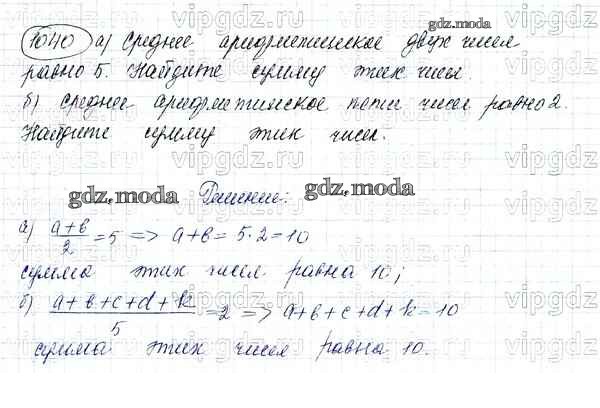 gdz.moda
1040 а) Среднее арифметическое двух чисел
равно 5. Найдите сумму этих чисел.
б) Среднее арифметическое пяти чисел равно 2.
Найдите сумму этих чисел.
gdz.moda Решение: gdz.moda
а) (a+b)/2 = 5 => a+b = 5·2=10
сумма этих чисел равна 10;
б) (a+b+c+d+k)/5 = 2 => a+b+c+d+k=10
сумма этих чисел равна 10.
vipgdz.ru